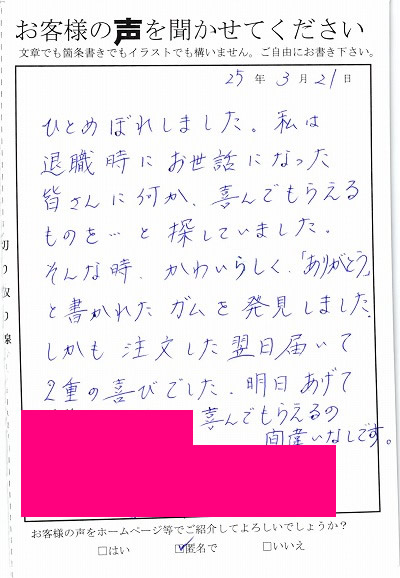 お客様の声を聞かせてください
文章でも箇条書きでもイラストでも構いません。ご自由にお書き下さい。
25年3月21日
ひとめぼれしました。私は
退職時にお世話になった
皆さんに何か、喜んでもらえる
ものを…と探していました。
そんな時、かわいらしく、「ありがとう」
と書かれたガムを発見しました。
しかも注文した翌日届いて
2重の喜びでした。明日あげて
喜んでもらえるの
間違いなしです。
切り取り線
お客様の声をホームページ等でご紹介してよろしいでしょうか?
□はい ☑匿名で □いいえ